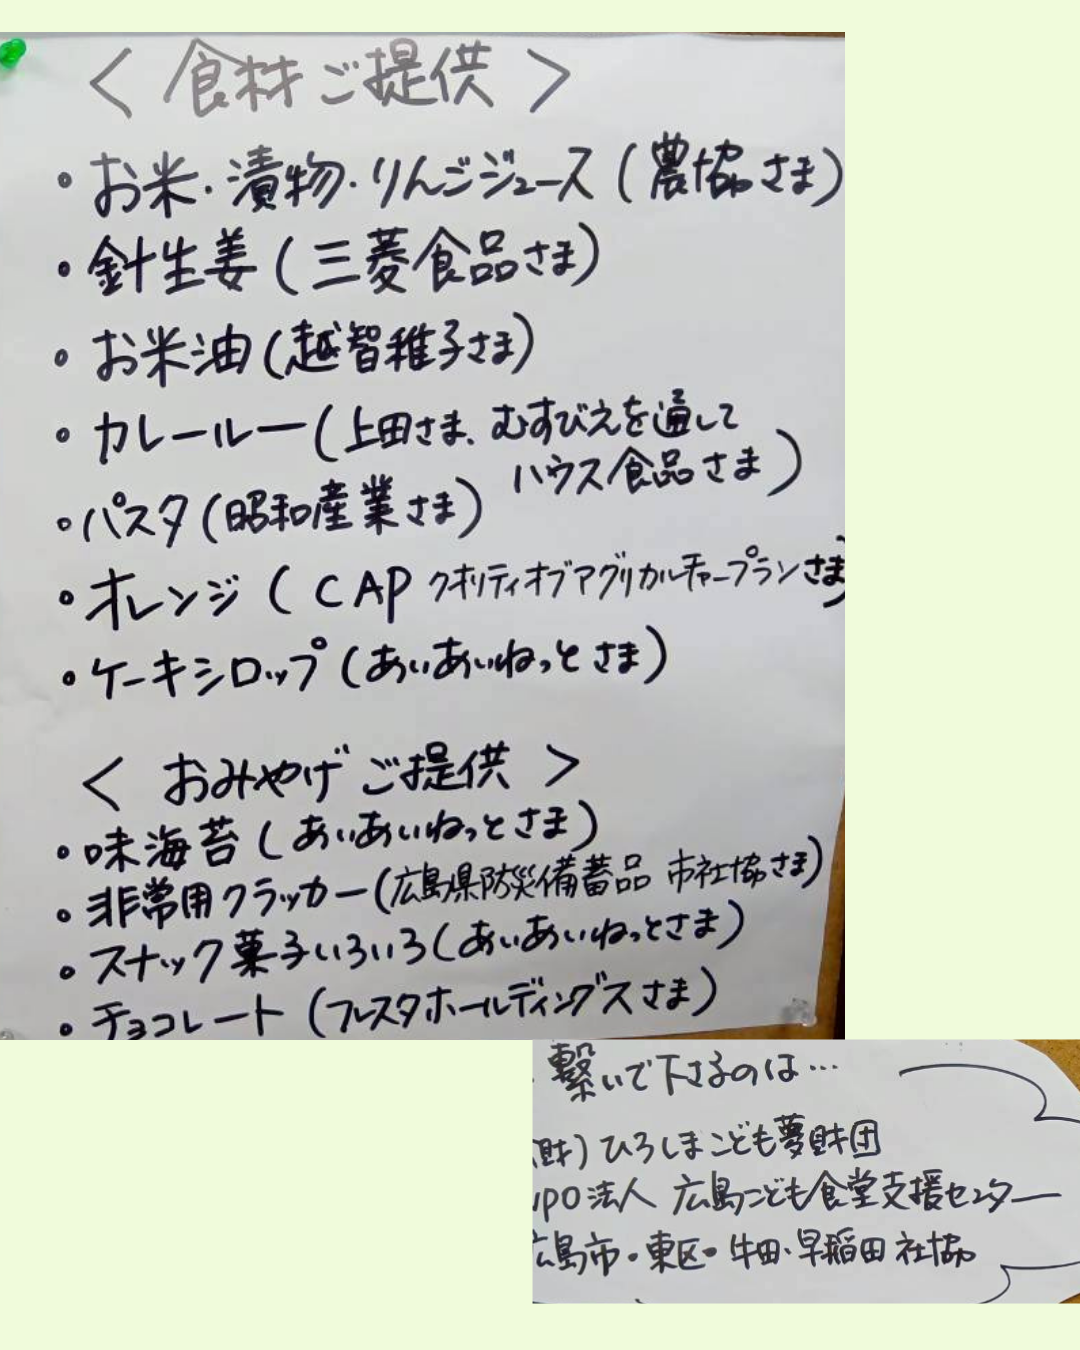 ＜食材ご提供＞
・お米・漬物・りんごジュース（農協さま）
・針生姜（三菱食品さま）
・お米油（越智稚子さま）
・カレールー（上田さま、むすびえを通して
ハウス食品さま）
・パスタ（昭和産業さま）
・オレンジ（CAP クオリティオブアグリカルチャープランさま）
・ケーキシロップ（あいあいねっとさま）
＜おみやげご提供＞
・味海苔（あいあいねっとさま）
・非常用クラッカー（広島県防災備蓄品 市社協さま）
・スナック菓子いろいろ（あいあいねっとさま）
・チョコレート（フレスタホールディングスさま）
繋いで下さるのは…
財）ひろしまこども夢財団
NPO法人 広島こども食堂支援センター
広島市・東区・牛田・早稲田社協